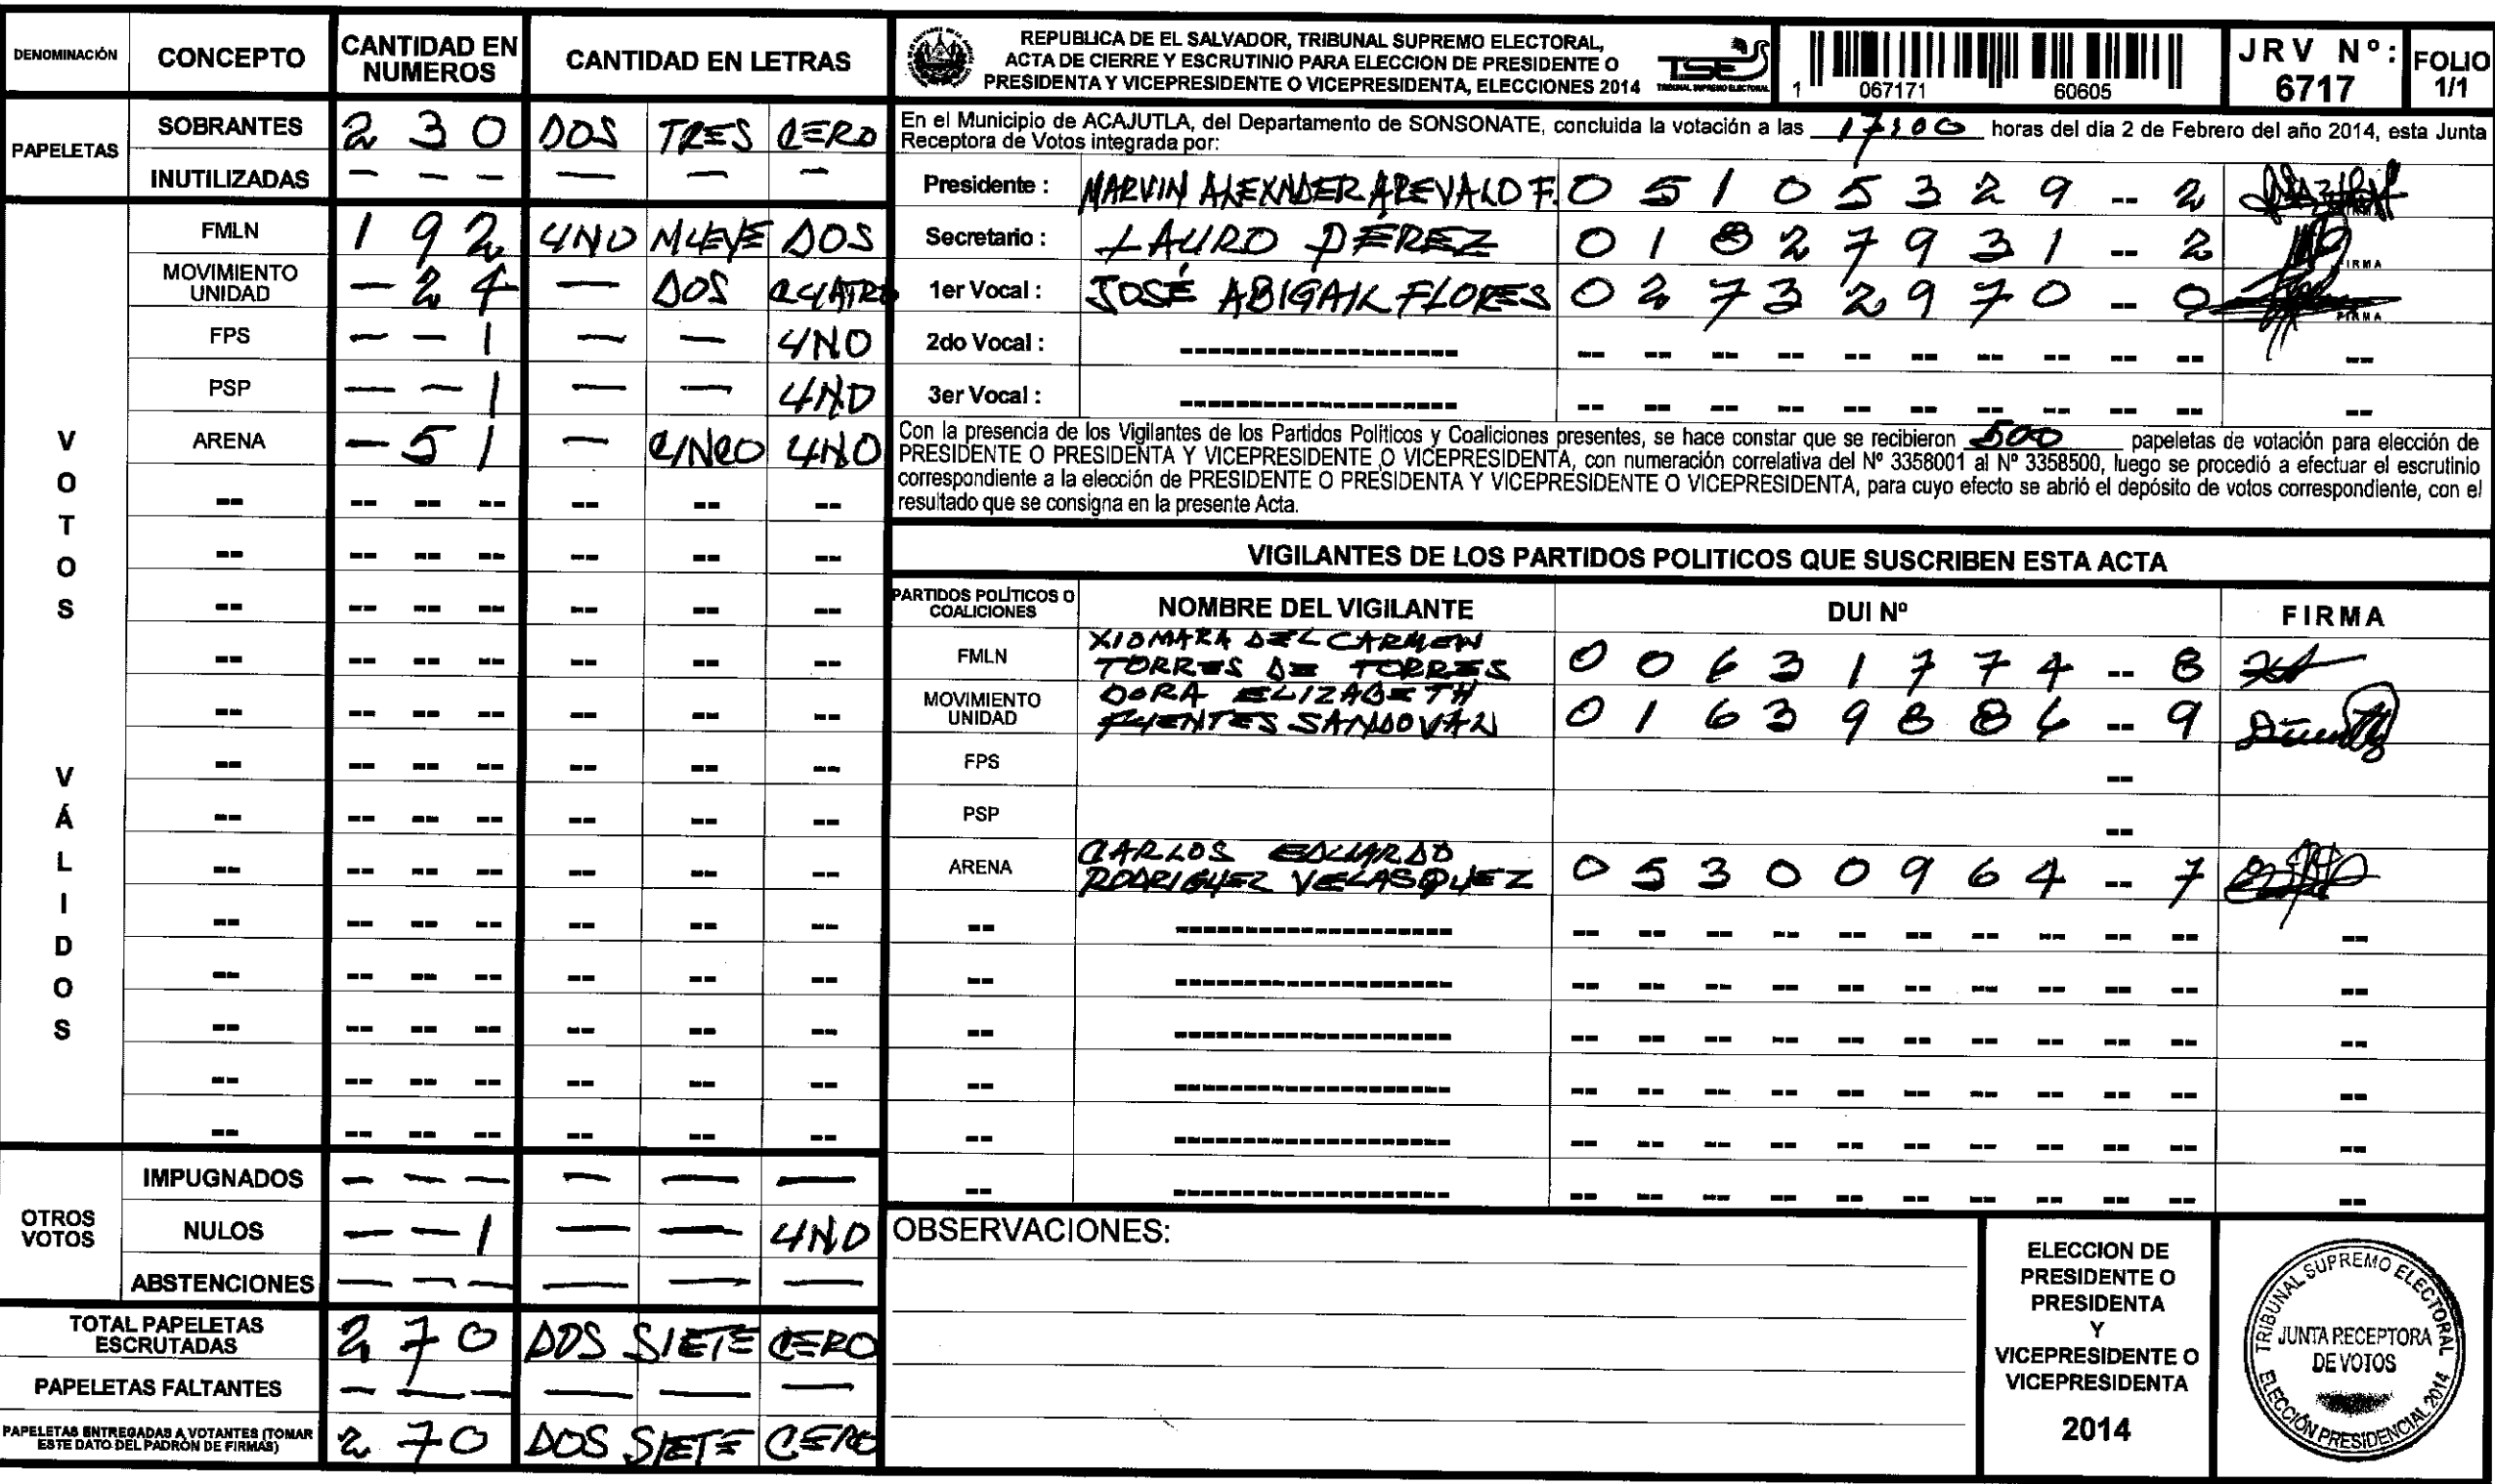 DENOMINACIÓN CONCEPTO CANTIDAD EN NUMEROS CANTIDAD EN LETRAS
PAPELETAS
SOBRANTES 2 3 0 DOS TRES CERO
INUTILIZADAS - - - - - -
VOTOS VÁLIDOS
FMLN 1 9 2 UNO NUEVE DOS
MOVIMIENTO UNIDAD - 2 4 - DOS CUATRO
FPS - - 1 - - UNO
PSP - - 1 - - UNO
ARENA - 5 1 - CINCO UNO
OTROS VOTOS
IMPUGNADOS - - - - - -
NULOS - - 1 - - UNO
ABSTENCIONES - - - - - -
TOTAL PAPELETAS ESCRUTADAS 2 7 0 DOS SIETE CERO
PAPELETAS FALTANTES - - - - - -
PAPELETAS ENTREGADAS A VOTANTES (TOMAR ESTE DATO DEL PADRÓN DE FIRMAS) 2 7 0 DOS SIETE CERO
REPUBLICA DE EL SALVADOR, TRIBUNAL SUPREMO ELECTORAL,
ACTA DE CIERRE Y ESCRUTINIO PARA ELECCION DE PRESIDENTE O
PRESIDENTA Y VICEPRESIDENTE O VICEPRESIDENTA, ELECCIONES 2014
TSE
TRIBUNAL SUPREMO ELECTORAL
1 067171 60605
JRV Nº: 6717
FOLIO 1/1
En el Municipio de ACAJUTLA, del Departamento de SONSONATE, concluida la votación a las 17:00 horas del día 2 de Febrero del año 2014, esta Junta
Receptora de Votos integrada por:
Presidente : MARVIN ALEXNDER AREVALO F. 0 5 1 0 5 3 2 9 -- 2
Secretario : LAURO PEREZ 0 1 8 2 7 9 3 1 -- 2 FIRMA
1er Vocal : JOSÉ ABIGAIL FLORES 0 2 7 3 2 9 7 0 -- 0 FIRMA
2do Vocal :
3er Vocal :
Con la presencia de los Vigilantes de los Partidos Politicos y Coaliciones presentes, se hace constar que se recibieron 500 papeletas de votación para elección de
PRESIDENTE O PRESIDENTA Y VICEPRESIDENTE O VICEPRESIDENTA, con numeración correlativa del Nº 3358001 al Nº 3358500, luego se procedió a efectuar el escrutinio
correspondiente a la elección de PRESIDENTE O PRESIDENTA Y VICEPRESIDENTE O VICEPRESIDENTA, para cuyo efecto se abrió el depósito de votos correspondiente, con el
resultado que se consigna en la presente Acta.
VIGILANTES DE LOS PARTIDOS POLITICOS QUE SUSCRIBEN ESTA ACTA
PARTIDOS POLÍTICOS O COALICIONES NOMBRE DEL VIGILANTE DUI Nº FIRMA
FMLN XIOMARA DEL CARMEN TORRES DE TORRES 0 0 6 3 1 7 7 4 -- 8
MOVIMIENTO UNIDAD DORA ELIZABETH FUENTES SANDOVAL 0 1 6 3 9 8 8 6 -- 9
FPS --
PSP --
ARENA CARLOS EDUARDO RODRIGUEZ VELASQUEZ 0 5 3 0 0 9 6 4 -- 7
OBSERVACIONES:
ELECCION DE
PRESIDENTE O
PRESIDENTA
Y
VICEPRESIDENTE O
VICEPRESIDENTA
2014
TRIBUNAL SUPREMO ELECTORAL
JUNTA RECEPTORA
DE VOTOS
ELECCIÓN PRESIDENCIAL 2014